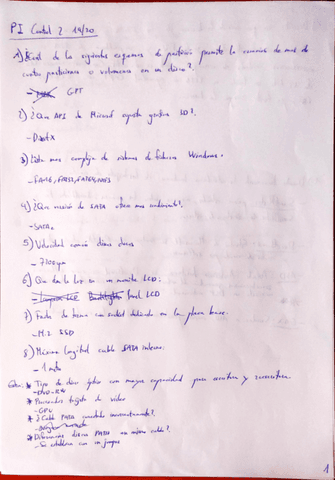 PI Control 2 19/20
1) ¿Cuál de los siguientes esquemas de partición permite la creación de mas de
cuatro particiones o volumenes en un disco?
- GPT
2) ¿Que API de Microsoft soporta graficos 3D?
- DirectX
3) Lista mas compleja de sistemas de ficheros Windows.
- FAT16, FAT32, NTFS
4) ¿Que versión de SATA ofrece mas rendimiento?
- SATA
5) Velocidad común discos duros
- 7200rpm
6) Que da la luz en un monitor LCD:
- Backlight Panel LCD
7) Factor de forma con socket dedicado en la placa base.
- M.2 SSD
8) Máxima longitud cable SATA interno:
- 1 metro
* Tipo de disco óptico con mayor capacidad para escritura y reescritura
- DVD-RW
* Procesador tarjeta de video
- GPU
* ¿Cable PATA conectado incorrectamente?
* Diferenciar discos PATA en mismo cable?
- Se establece con un jumper
1